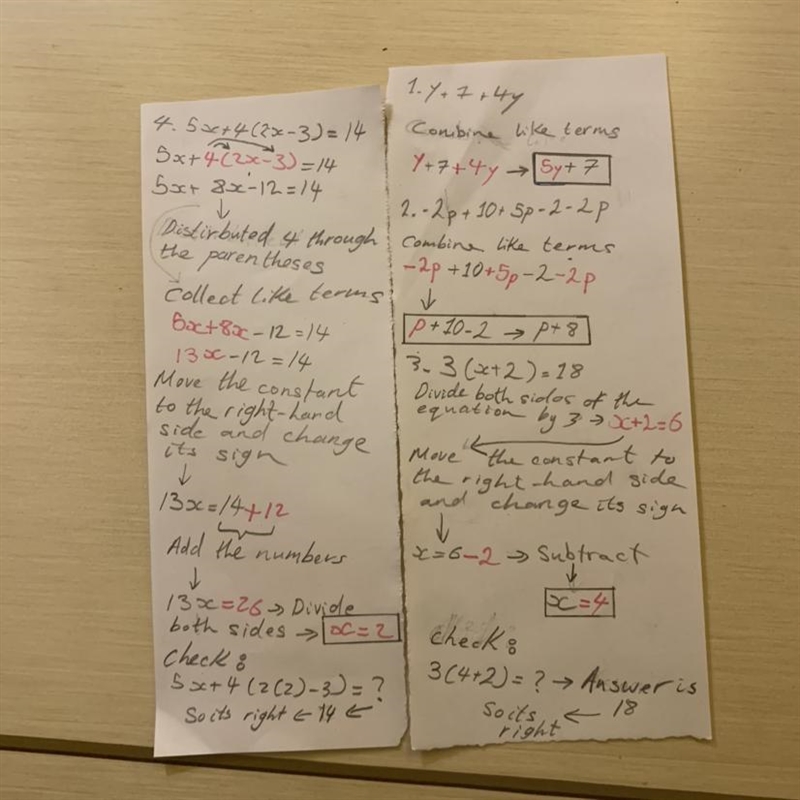 1. y+7+4y
Combine like terms
y+7+4y → 5y+7
2. -2p+10+5p-2-2p
Combine like terms
-2p+10+5p-2-2p
↓
p+10-2 → p+8
3. 3(x+2)=18
Divide both sides of the
equation by 3 → x+2=6
Move the constant to
the right-hand side
and change its sign
↓
x=6-2 → Subtract
↓
x=4
Check:
3(4+2)=? → Answer is
18
So its ←
right
4. 5x+4(2x-3)=14
5x+4(2x-3)=14
5x+8x-12=14
↓
Distirbuted 4 through
the parentheses
Collect like terms
5x+8x-12=14
13x-12=14
Move the constant
to the right-hard
side and change
its sign
↓
13x=14+12
Add the numbers
↓
13x=26 → Divide
both sides → x=2
Check:
5x+4(2(2)-3)=?
So its right ← 14 ←